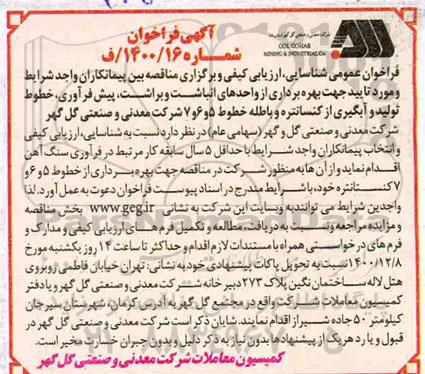 آگهی فراخوان
شماره ۱۴۰۰/۱۶/ف
شرکت معدنی و صنعتی گل گهر (سهامی عام)
GOL GOHAR
MINING & INDUSTRIAL CO.
فراخوان عمومی شناسایی، ارزیابی کیفی و برگزاری مناقصه بین پیمانکاران واجد شرایط
و مورد تایید جهت بهره برداری از واحدهای انباشت و برداشت، پیش فرآوری، خطوط
تولید و آبگیری از کنسانتره و باطله خطوط ۵و۶و۷ شرکت معدنی و صنعتی گل گهر
شرکت معدنی و صنعتی گل و گهر (سهامی عام) در نظر دارد نسبت به شناسایی، ارزیابی کیفی
و انتخاب پیمانکاران واجد شرایط با حداقل ۵ سال سابقه کار مرتبط در فرآوری سنگ آهن
اقدام نماید و از آن ها به منظور شرکت در مناقصه جهت بهره برداری از خطوط ۵ و ۶ و
۷ کنسانتره خود، با شرایط مندرج در اسناد پیوست فراخوان دعوت به عمل آورد. لذا
واجدین شرایط می توانند به وبسایت این شرکت به نشانی www.geg.ir بخش مناقصه
و مزایده مراجعه و نسبت به دریافت، مطالعه و تکمیل فرم های ارزیابی کیفی و مدارک و
فرم های درخواستی همراه با مستندات لازم اقدام و حداکثر تا ساعت ۱۴ روز یکشنبه مورخ
۱۴۰۰/۱۲/۸ نسبت به تحویل پاکات پیشنهادی خود به نشانی: تهران خیابان فاطمی روبروی
هتل لاله ساختمان نگین پلاک ۲۷۳ دبیرخانه شرکت معدنی و صنعتی گل گهر و یا دفتر
کمیسیون معاملات شرکت واقع در مجتمع گل گهر به آدرس کرمان، شهرستان سیرجان
کیلومتر ۵۰ جاده شیراز اقدام نمایند. شایان ذکر است شرکت معدنی و صنعتی گل گهر در
قبول و یا رد هر یک از پیشنهادها بدون نیاز به ذکر دلیل و بدون جبران خسارت مخیر است.
کمیسیون معاملات شرکت معدنی و صنعتی گل گهر